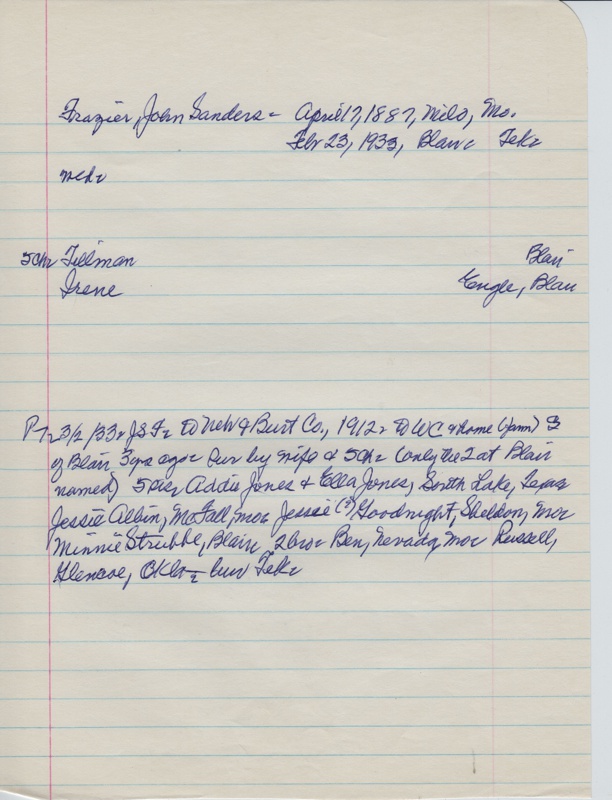 Frazier, John Sanders - April 17, 1887, Milo, Mo.
Feb 23, 1933, Blair Tek-
mch-
5ch- Tillman Blair
Irene Engle, Blair
P7- 3/2/33- J.S.F- to Neb & Burt Co., 1912- to WC & home (farm)
of Blair 3yrs ago- sur by wife & 5ch- (only the 2 at Blair
named) 5sis- Addie Jones & Ella Jones, South Lake, Texas
Jessie Albin, McFall, mo- Jessie (?) Goodnight, Sheldon, mo-
Minnie Strubbe, Blair 2bro- Ben, Nevada, mo- Russell,
Glencoe, Okla- bur Tek-